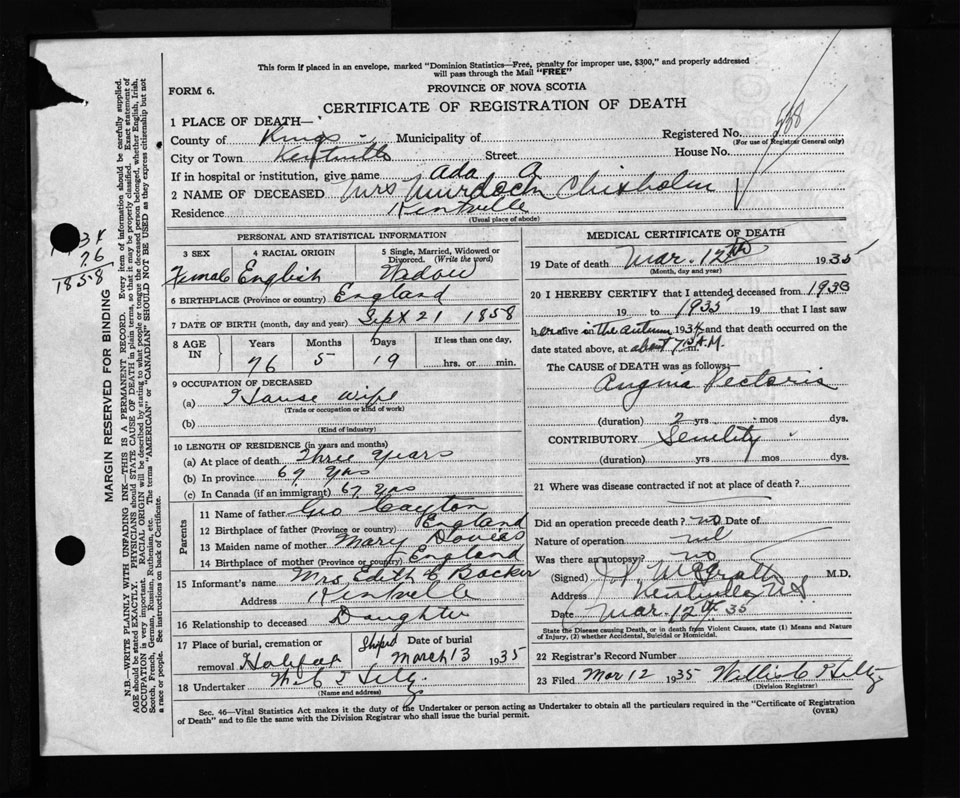 This form if placed in an envelope, marked "Dominion Statistics—Free, penalty for improper use, $300," and properly addressed
will pass through the Mail "FREE"
FORM 6.
PROVINCE OF NOVA SCOTIA
CERTIFICATE OF REGISTRATION OF DEATH
1 PLACE OF DEATH—
County of Kings Municipality of Registered No. 558
(For use of Registrar General only)
City or Town Kentville Street House No.
If in hospital or institution, give name Ada A
2 NAME OF DECEASED Mrs Murdoch Chisholm
Residence Kentville
(Usual place of abode)
PERSONAL AND STATISTICAL INFORMATION
3 SEX 4 RACIAL ORIGIN 5 Single, Married, Widowed or Divorced. (Write the word)
Female English Widow
6 BIRTHPLACE (Province or country) England
7 DATE OF BIRTH (month, day and year) Sept 21 1858
8 AGE IN Years Months Days If less than one day,
76 5 19 hrs. or min.
9 OCCUPATION OF DECEASED
(a) House wife
(Trade or occupation or kind of work)
(b)
(Kind of industry)
10 LENGTH OF RESIDENCE (in years and months)
(a) At place of death Three years
(b) In province 67 yrs
(c) In Canada (if an immigrant) 67 yrs
Parents
11 Name of father Geo Cayton
12 Birthplace of father (Province or country) England
13 Maiden name of mother Mary Davies
14 Birthplace of mother (Province or country) England
15 Informant's name Mrs Edith C Backer
Address Kentville
16 Relationship to deceased Daughter
17 Place of burial, cremation or removal Halifax Shiped Date of burial March 13 1935
18 Undertaker
(Name and address)
MEDICAL CERTIFICATE OF DEATH
19 Date of death Mar. 12th 1935
(Month, day and year)
20 I HEREBY CERTIFY that I attended deceased from 1933
19 to 1935 19 that I last saw
her alive in the autumn 1934 and that death occurred on
date stated above, at about 7 A.M.
The CAUSE of DEATH was as follows:—
Angina Pectoris
(duration) 2 yrs mos dys.
CONTRIBUTORY Senility
(duration) yrs mos dys.
21 Where was disease contracted if not at place of death?
Did an operation precede death? no Date of
Nature of operation nil
Was there an autopsy? no
(Signed) McGrath M.D.
Address Kentville NS
Date Mar. 12th 35
State the Disease causing Death, or in death from Violent Causes, state (1) Means and Nature
of Injury, (2) whether Accidental, Suicidal or Homicidal.
22 Registrar's Record Number
23 Filed Mar 12 1935 Willis C Hiltz
(Division Registrar)
Sec. 46—Vital Statistics Act makes it the duty of the Undertaker or person acting as Undertaker to obtain all the particulars required in the "Certificate of Registration
of Death" and to file the same with the Division Registrar who shall issue the burial permit.
(OVER)
34
76
1858
MARGIN RESERVED FOR BINDING
N.B.—WRITE PLAINLY WITH UNFADING INK—THIS IS A PERMANENT RECORD. Every item of information should be carefully supplied.
AGE should be stated EXACTLY. PHYSICIANS should STATE CAUSE OF DEATH in plain terms, so that it may be properly classified. Exact statement of
OCCUPATION is very important. RACIAL ORIGIN will be described by stating to what people or tongue the deceased person belonged, whether English, Irish,
Scotch, French, German, Russian, Ruthenian, etc. The terms "AMERICAN" or "CANADIAN" SHOULD NOT BE USED as they express citizenship but not
a race or people. See instructions on back of Certificate.